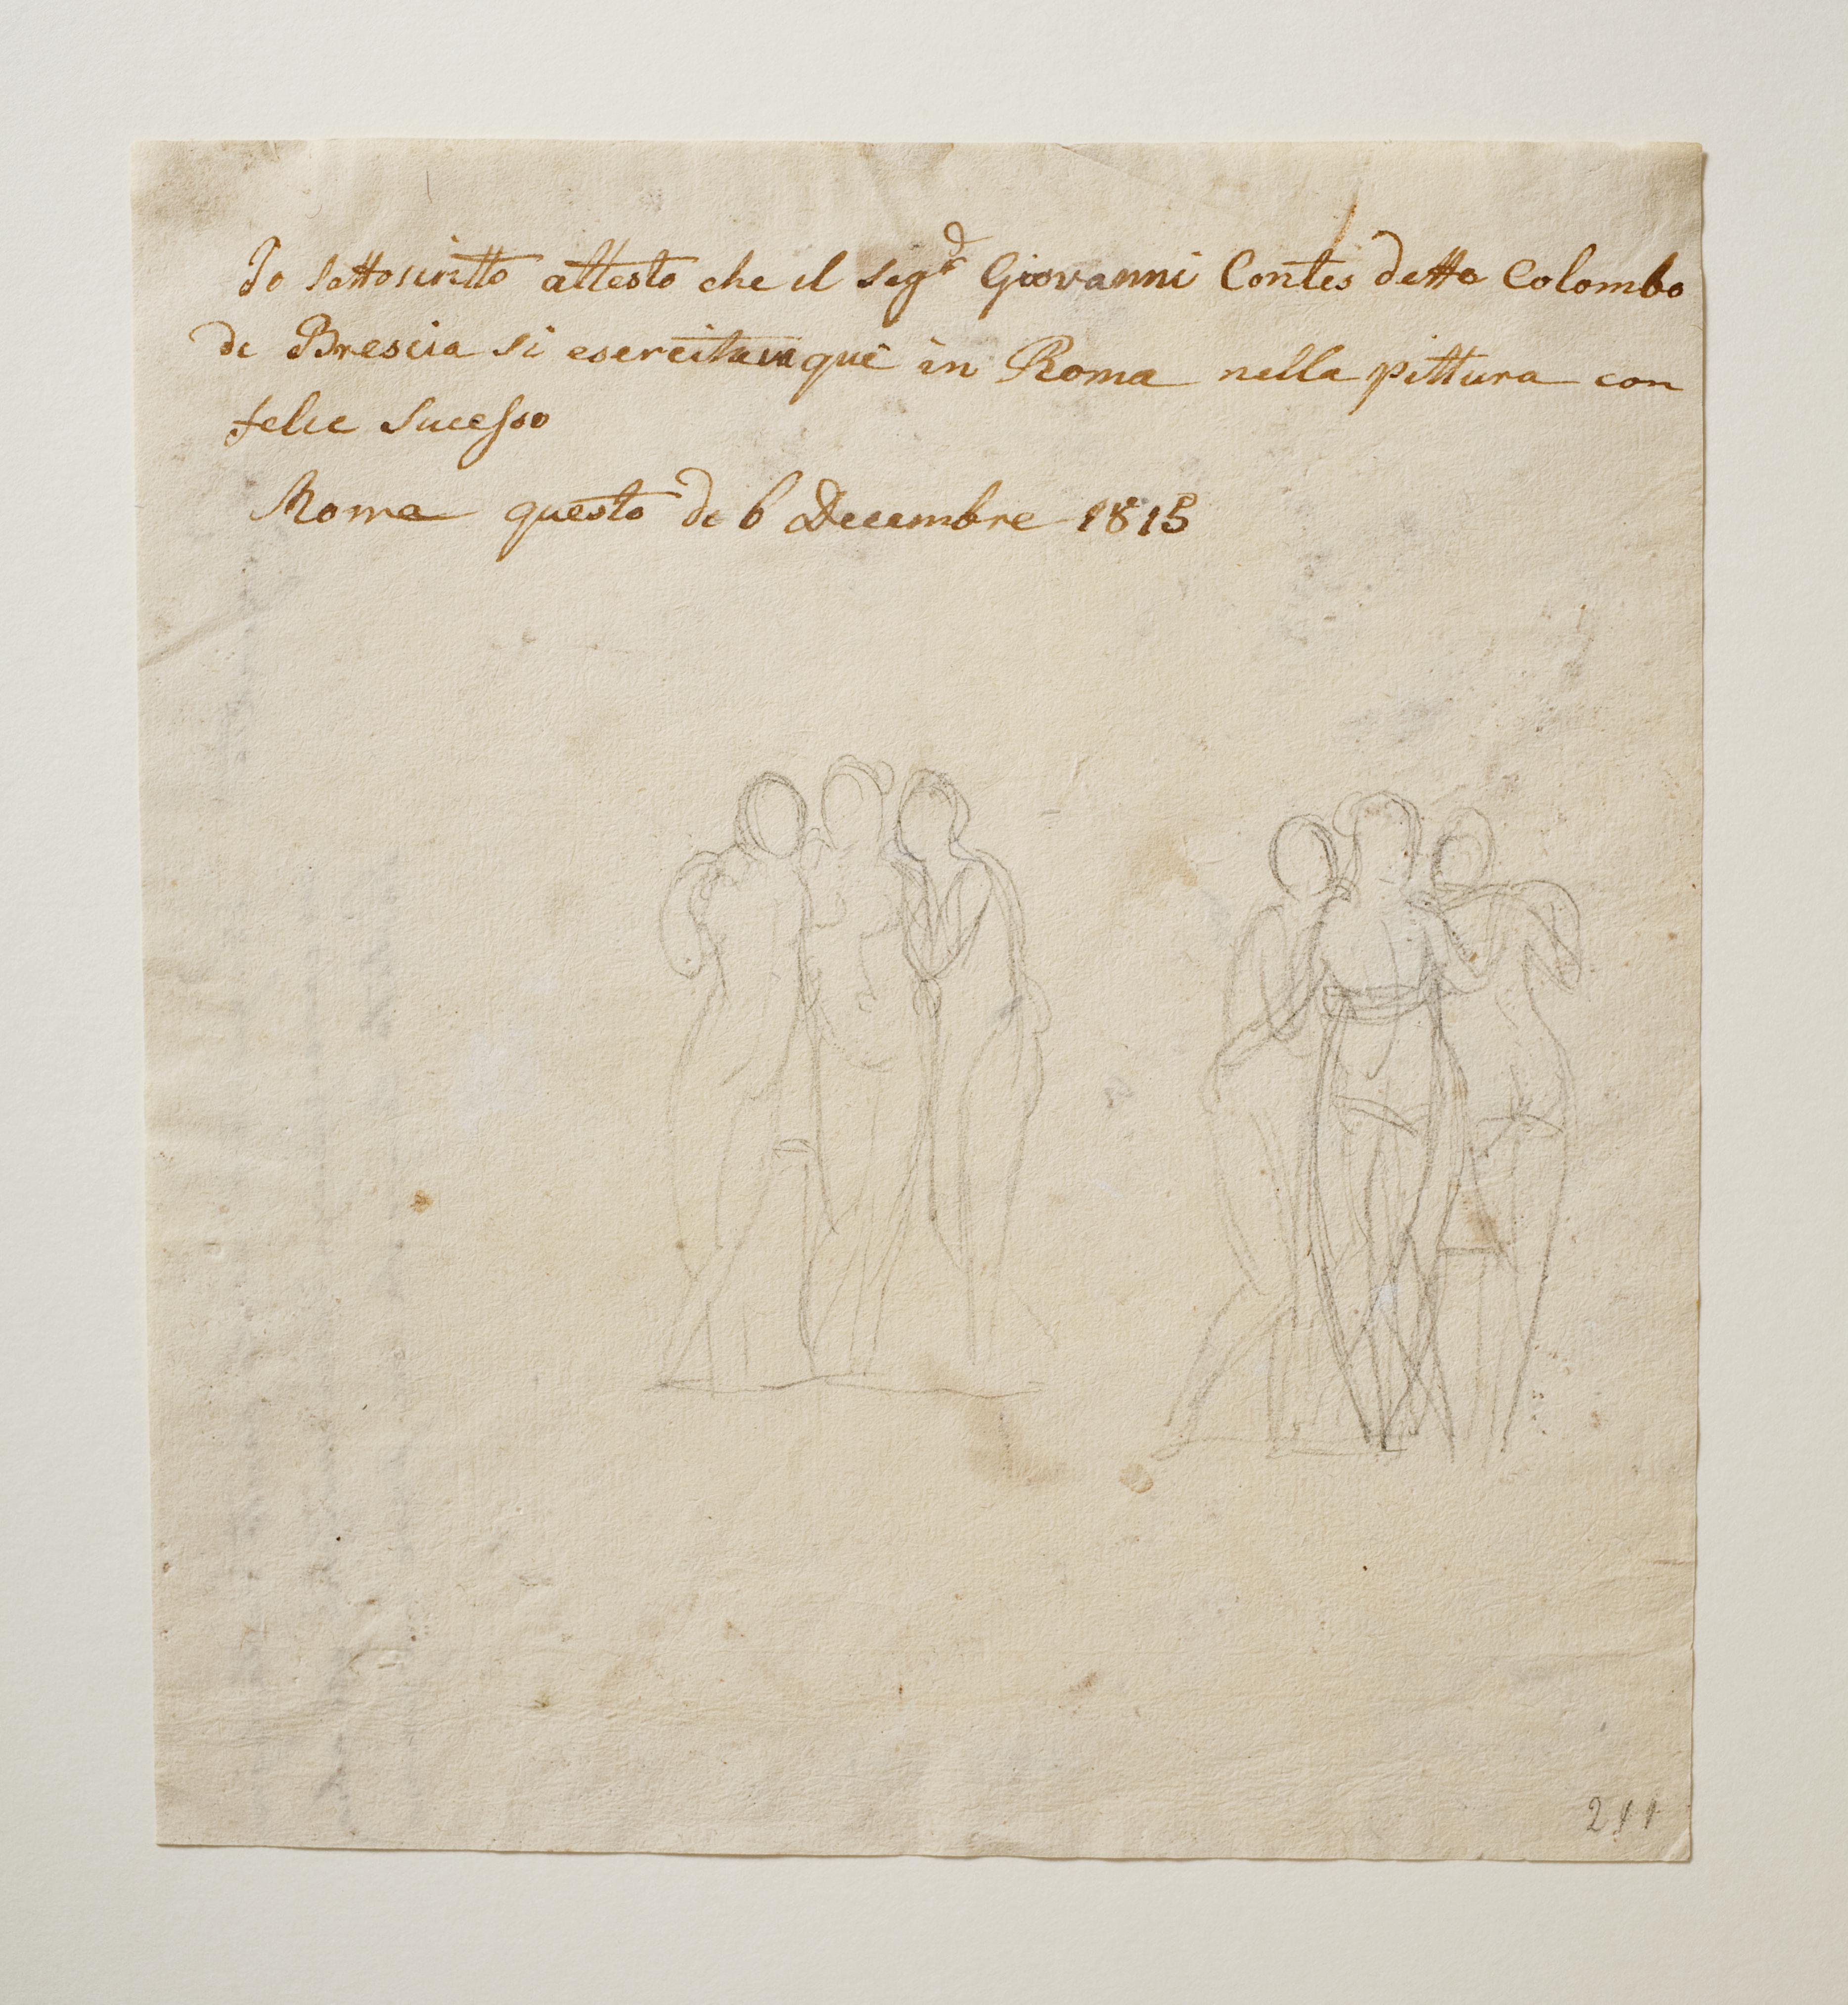 Io sottoscritto attesto che il sigʳ Giovanni Contes detto Colombo
di Brescia si esercita qui in Roma nella pittura con
felice sucesso
Roma questo di 6 Decembre 1815
211